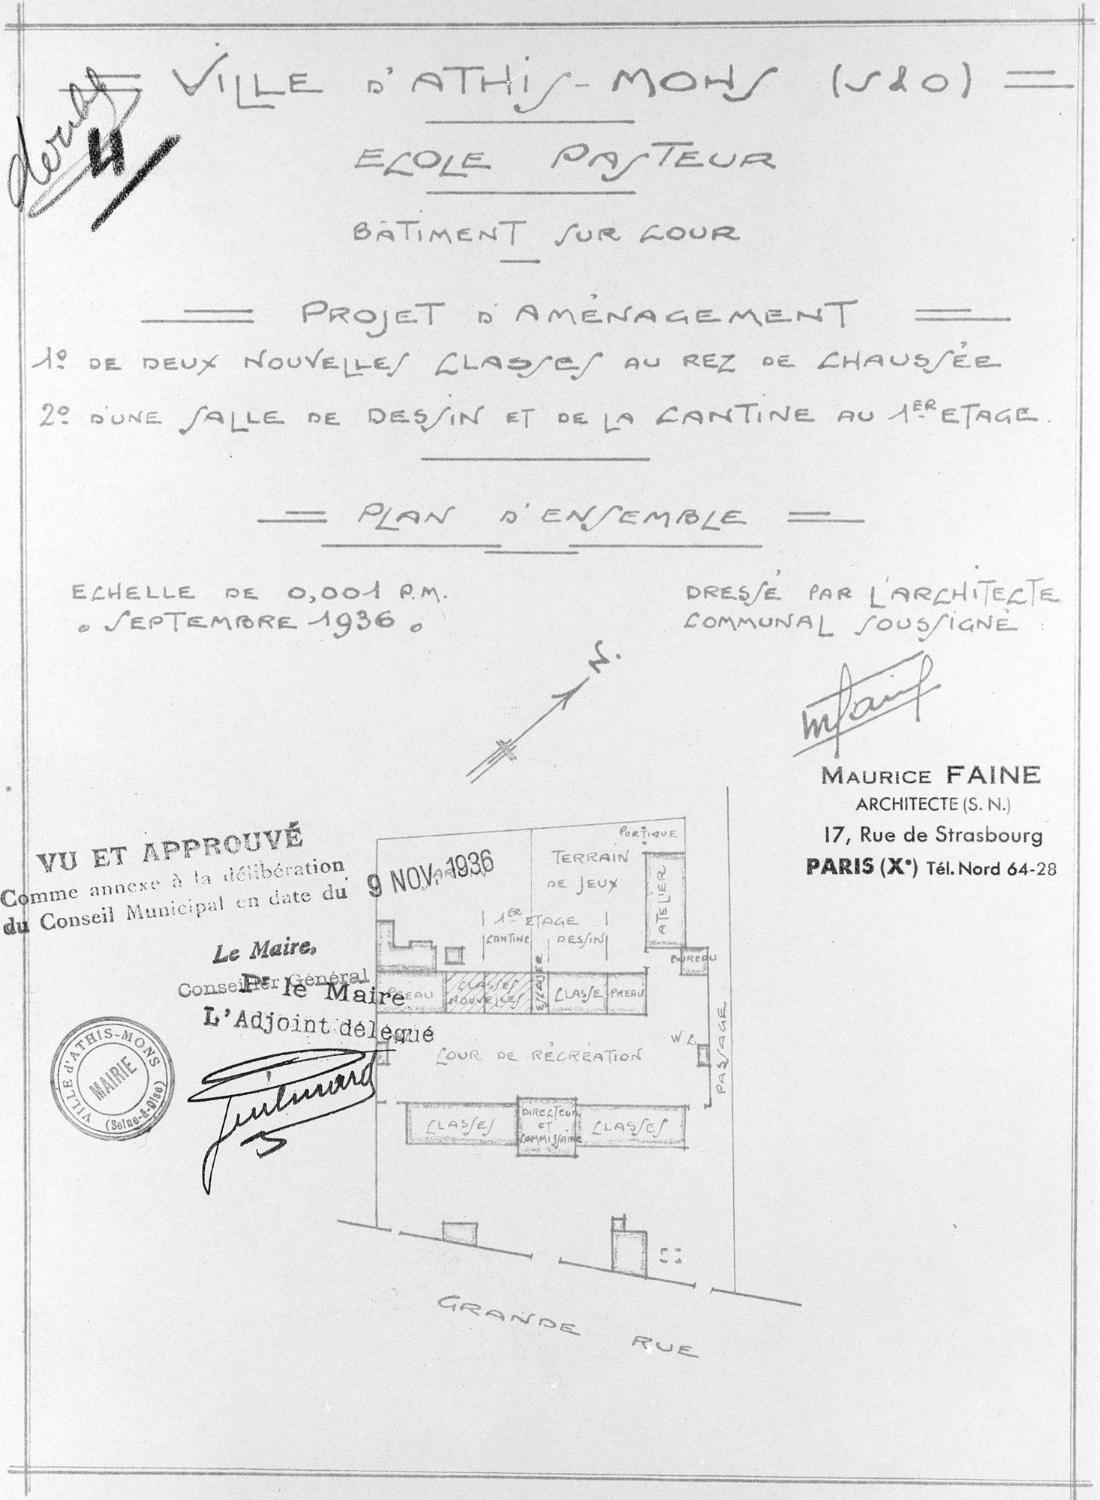 VILLE D'ATHIS-MONS (S&O)
11
ECOLE PASTEUR
BÂTIMENT SUR COUR
PROJET D'AMÉNAGEMENT
1º DE DEUX NOUVELLES CLASSES AU REZ DE CHAUSSÉE
2º D'UNE SALLE DE DESSIN ET DE LA CANTINE AU 1ER ETAGE.
PLAN D'ENSEMBLE
ECHELLE DE 0,001 P.M.
SEPTEMBRE 1936
DRESSÉ PAR L'ARCHITECTE
COMMUNAL SOUSSIGNÉ
N.
MAURICE FAINE
ARCHITECTE (S. N.)
17, Rue de Strasbourg
PARIS (Xe) Tél. Nord 64-28
VU ET APPROUVÉ
Comme annexe à la délibération
du Conseil Municipal en date du
9 NOV. 1936
Le Maire,
Conseiller Général
Pr le Maire
L'Adjoint délégué
VILLE d'ATHIS-MONS
MAIRIE
(Seine-&-Oise)
PORTIQUE
TERRAIN
DE JEUX
ATELIER
1ER ETAGE
CANTINE
DESSIN
BUREAU
PREAU
CLASSES
NOUVELLES
ESCALIER
CLASSE
PREAU
W.C.
PASSAGE
COUR DE RÉCRÉATION
CLASSES
DIRECTEUR
ET
COMMISSAIRE
CLASSES
GRANDE RUE